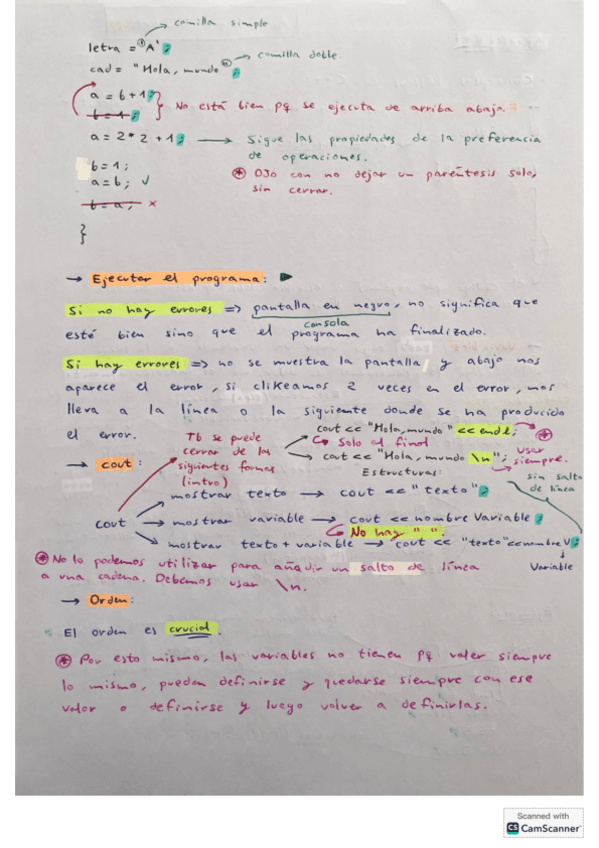 comilla simple
letra = 'A';
comilla doble.
cad = "Hola, mundo";
a = b + 1;
b = 1;
No está bien pq se ejecuta de arriba abajo.
a = 2 * 2 + 1; → Sigue las propiedades de la preferencia
de operaciones.
b = 1;
a = b; ✓
⊛ Ojo con no dejar un paréntesis solo,
sin cerrar.
b = a; ×
}
→ Ejecutar el programa: ▶
Si no hay errores => pantalla en negro, no significa que
consola
esté bien sino que el programa ha finalizado.
Si hay errores => no se muestra la pantalla, y abajo nos
aparece el error, si clikeamos 2 veces en el error, nos
lleva a la línea o la siguiente donde se ha producido
el error.
Tb se puede
cerrar de las
siguientes formas
(intro)
cout << "Hola, mundo" << endl; ⊛
Solo al final
cout << "Hola, mundo \n";
usar
siempre.
→ cout:
Estructuras:
sin salto
de línea
cout
mostrar texto → cout << "texto";
mostrar variable → cout << nombre Variable;
No hay " ".
mostrar texto + variable → cout << "texto" << nombre V;
Variable
⊛ No lo podemos utilizar para añadir un salto de línea
a una cadena. Debemos usar \n.
→ Orden:
El orden es crucial.
⊛ Por esto mismo, las variables no tienen pq valer siempre
lo mismo, pueden definirse y quedarse siempre con ese
valor o definirse y luego volver a definirlas.
Scanned with
CS CamScanner